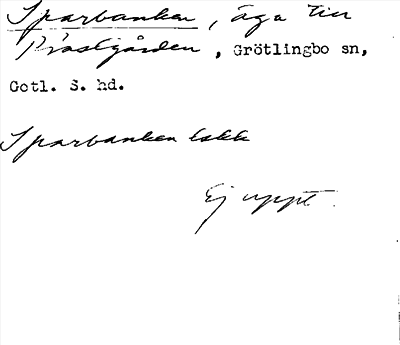 Sparbanken, äga till
Prästgården, Grötlingbo sn,
Gotl. S. hd.
Sparbanken
Ej uppt.